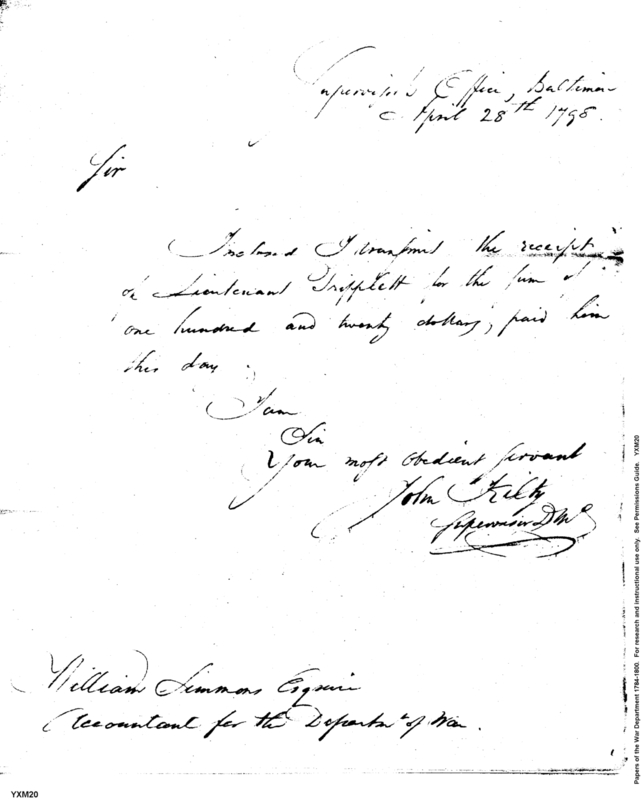 Supervisor's Office, Baltimore
April 28th 1798.
Sir
Inclosed I transmit the receipt
of Lieutenant Tripplett for the sum of
one hundred and twenty dollars, paid him
this day.
I am
Sir
Your most obedient servant
John Kilty
Supervisor D Md
William Simmons Esquire
Accountant for the Departmt of War.
YXM20
Papers of the War Department 1784-1800. For research and instructional use only. See Permissions Guide. YXM20